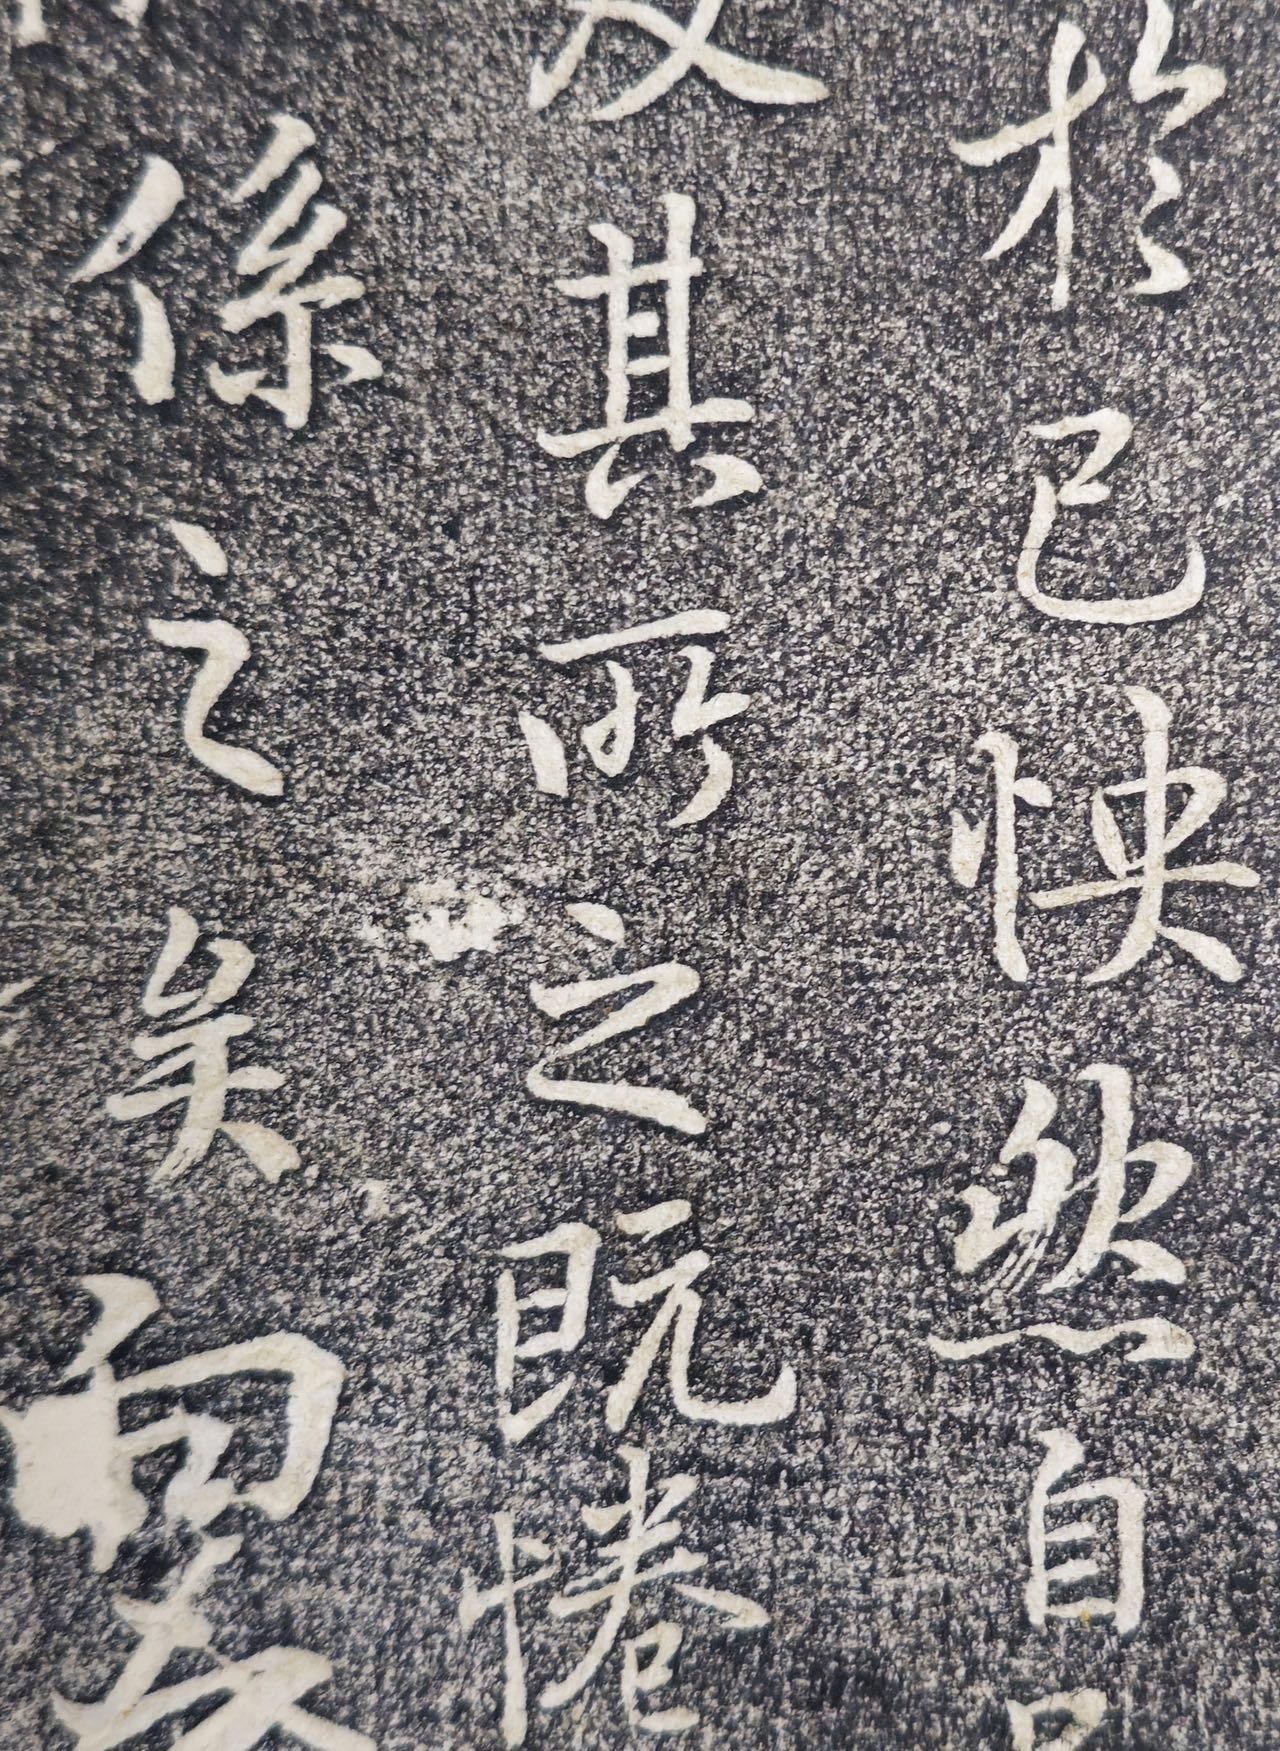 於己怏然自
及其所之既惓
係之矣向之